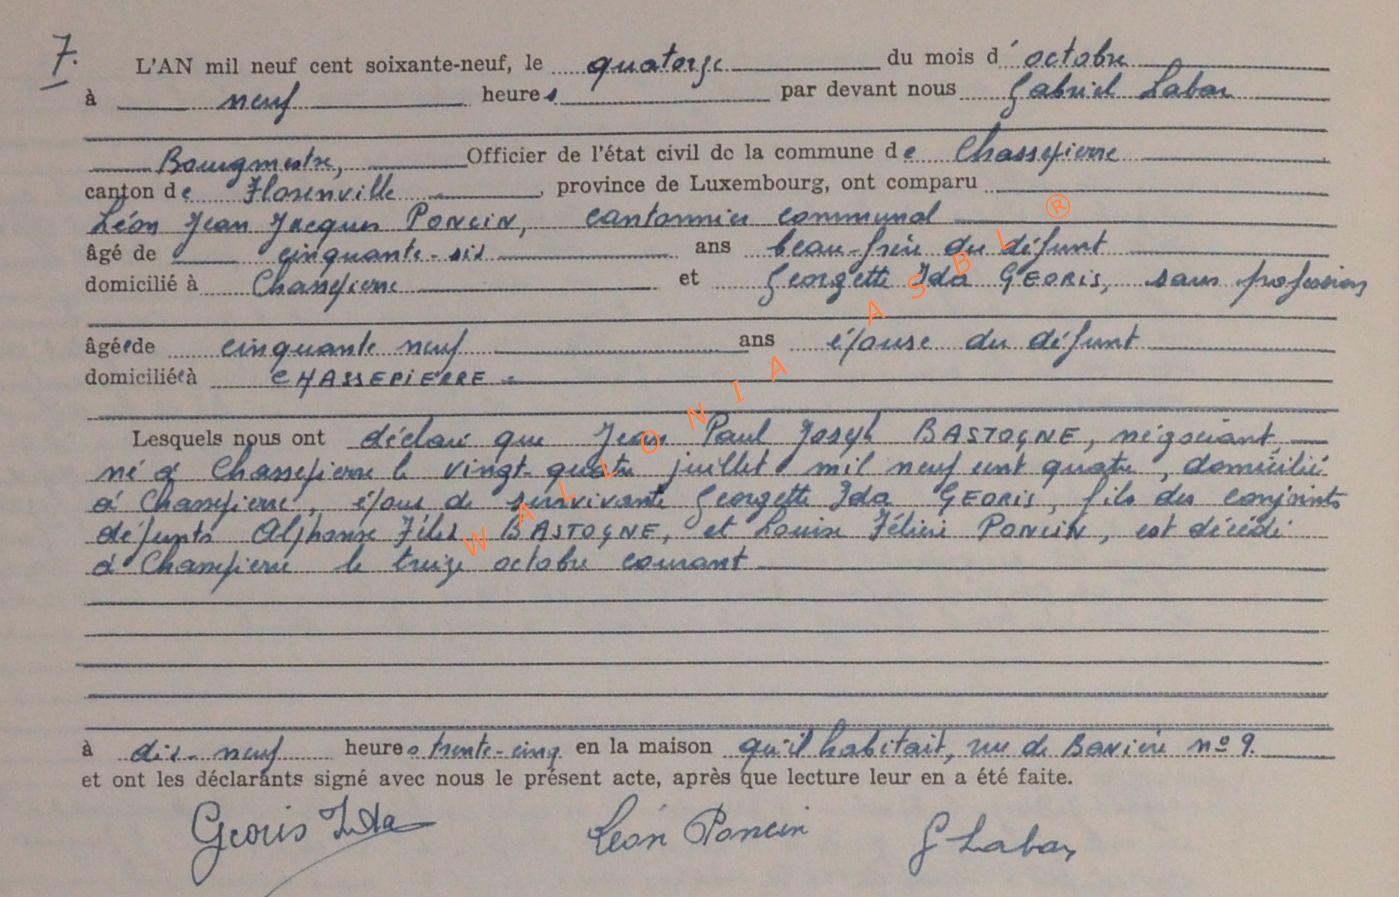 7.
L'AN mil neuf cent soixante-neuf, le quatorze du mois d'octobre
à neuf heures par devant nous Gabriel Labar
Bourgmestre, Officier de l'état civil de la commune de Chassepierre
canton de Florenville, province de Luxembourg, ont comparu
Léon Jean Jacques PONCIN, cantonnier communal
âgé de cinquante-six ans beau-frère du défunt
domicilié à Chassepierre et Georgette Ida GEORIS, sans profession,
âgée de cinquante neuf ans épouse du défunt
domiciliée à CHASSEPIERRE
Lesquels nous ont déclaré que Jean Paul Joseph BASTOGNE, négociant
né à Chassepierre le vingt-quatre juillet mil neuf cent quatre, domicilié
à Chassepierre, époux de survivante Georgette Ida GEORIS, fils des conjoints
défunts Alphonse Félix BASTOGNE, et Louise Félicie PONCIN, est décédé
à Chassepierre le treize octobre courant
à dix-neuf heures trente-cinq en la maison qu'il habitait, rue de Bavière nº 9.
et ont les déclarants signé avec nous le présent acte, après que lecture leur en a été faite.
Georis Ida Léon Poncin G Labar
WALLONIA ASBL ®